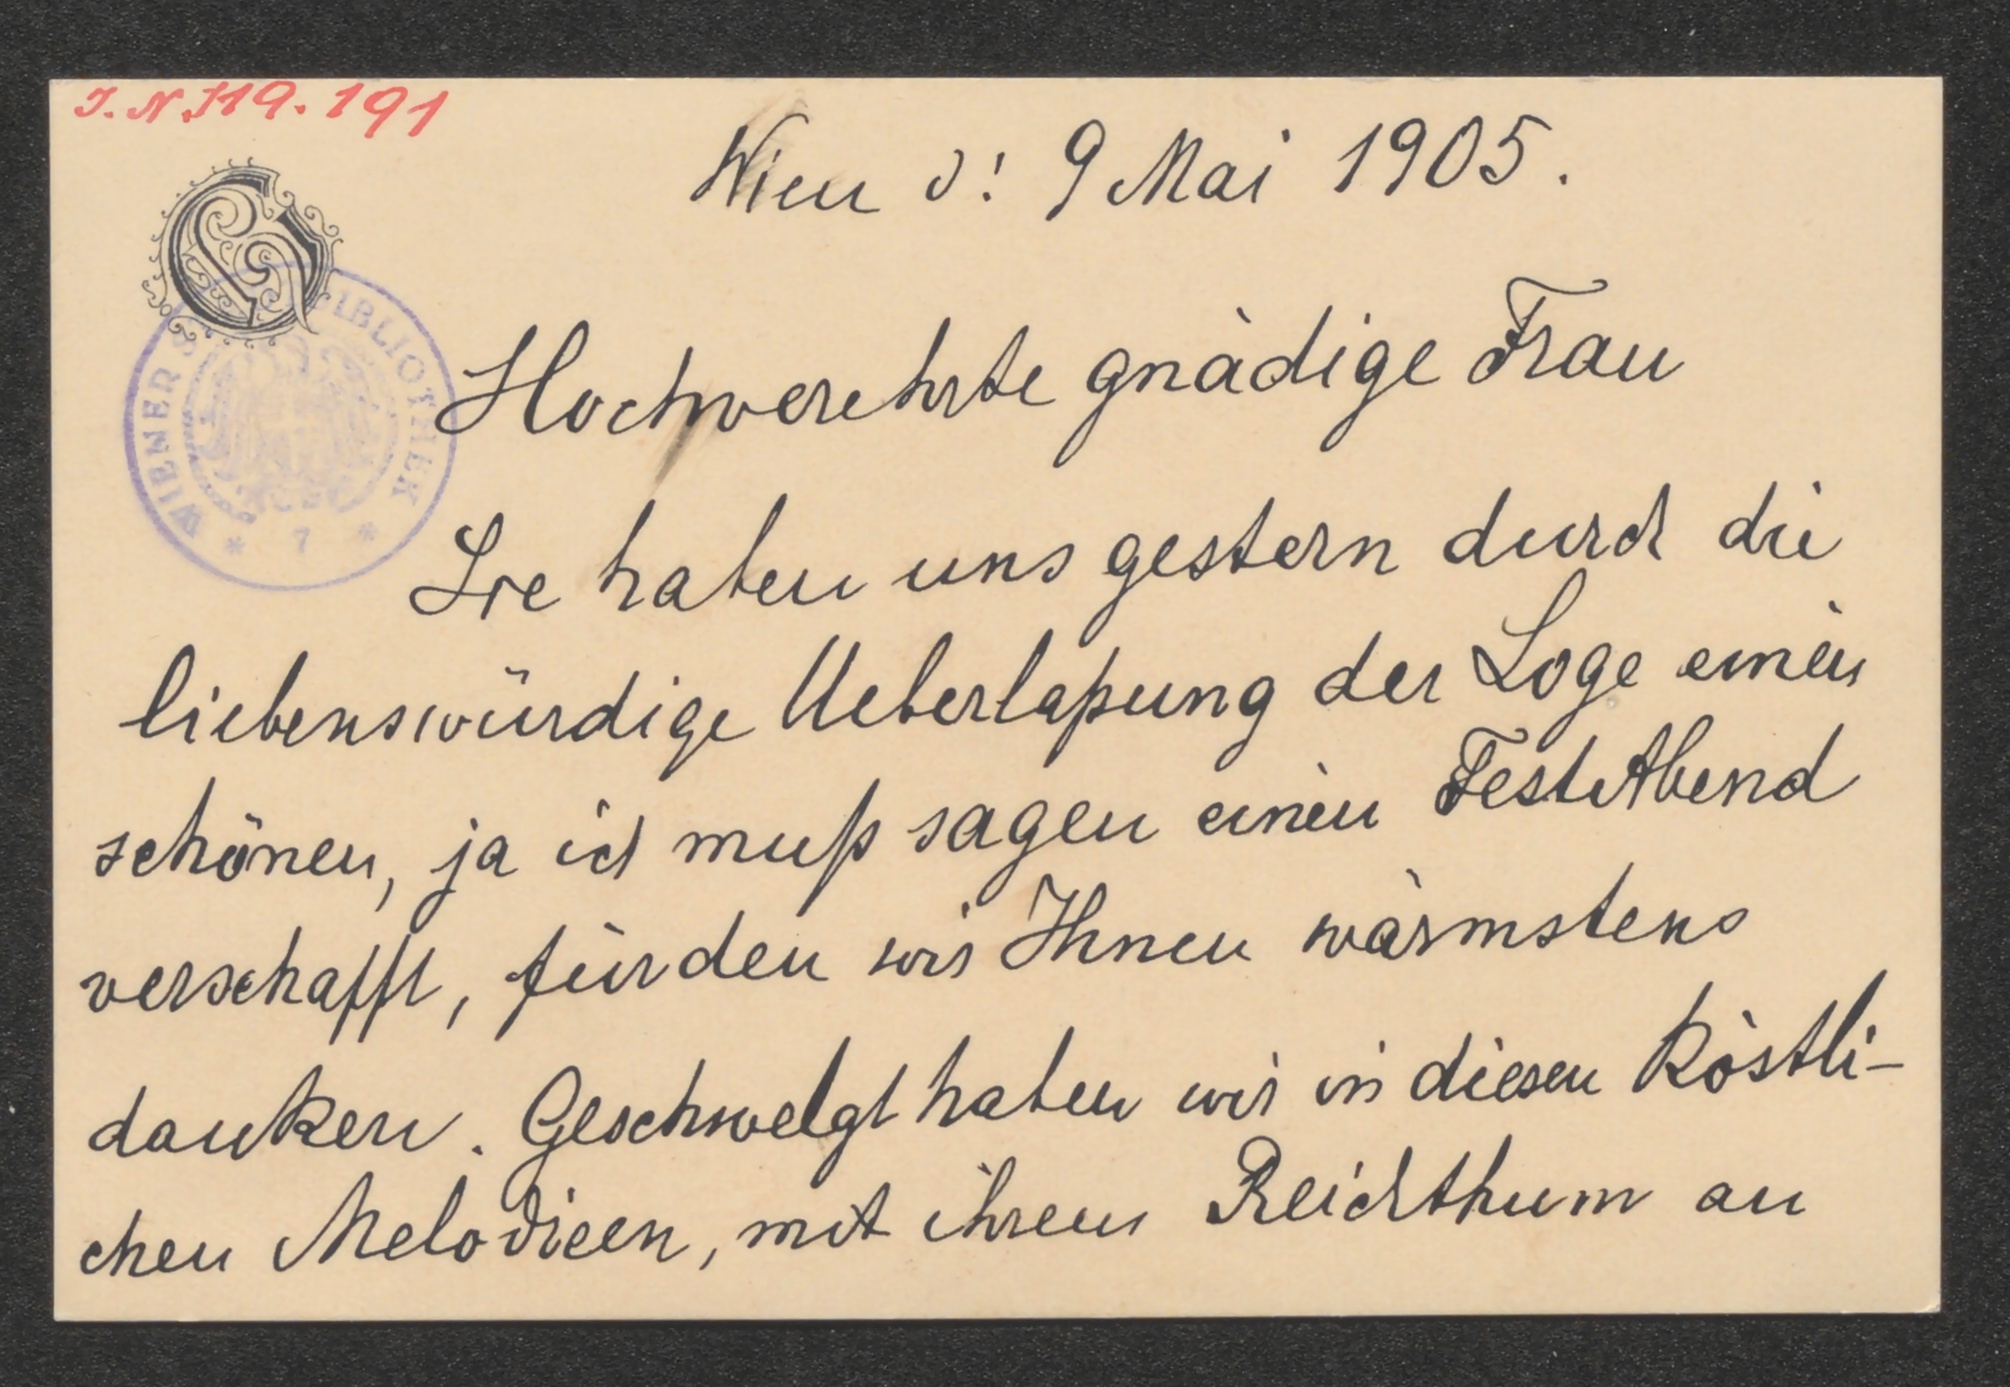 J.N. 119.191
Wien d: 9 Mai 1905.
WIENER S BIBLIOTHEK
* 7 *
Hochverehrte gnädige Frau
Sie haben uns gestern durch die
liebenswürdige Ueberlaßung der Loge einen
schönen, ja ich muß sagen einen FestAbend
verschafft, für den wir Ihnen wärmstens
danken. Geschwelgt haben wir in diesen köstli-
chen Melodieen, mit ihrem Reichthum an